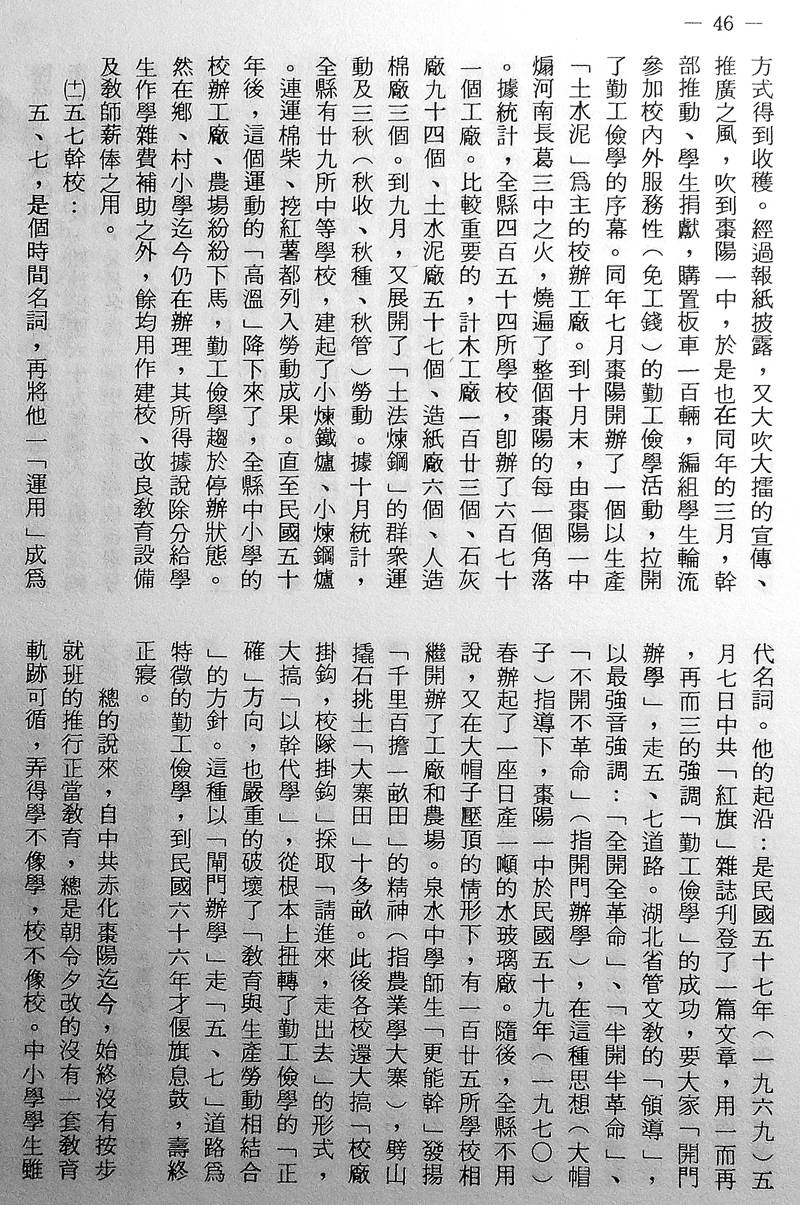 — 46 —
方式得到收穫。經過報紙披露，又大吹大擂的宣傳、
推廣之風，吹到棗陽一中，於是也在同年的三月，幹
部推動、學生捐獻，購置板車一百輛，編組學生輪流
參加校內外服務性（免工錢）的勤工儉學活動，拉開
了勤工儉學的序幕。同年七月棗陽開辦了一個以生產
「土水泥」為主的校辦工廠。到十月末，由棗陽一中
煽河南長葛三中之火，燒遍了整個棗陽的每一個角落
。據統計，全縣四百五十四所學校，卽辦了六百七十
一個工廠。比較重要的，計木工廠一百廿三個、石灰
廠九十四個、土水泥廠五十七個、造紙廠六個、人造
棉廠三個。到九月，又展開了「土法煉鋼」的群衆運
動及三秋（秋收、秋種、秋管）勞動。據十月統計，
全縣有廿九所中等學校，建起了小煉鐵爐、小煉鋼爐
。連運棉柴、挖紅薯都列入勞動成果。直至民國五十
年後，這個運動的「高溫」降下來了，全縣中小學的
校辦工廠、農場紛紛下馬，勤工儉學趨於停辦狀態。
然在鄉、村小學迄今仍在辦理，其所得據說除分給學
生作學雜費補助之外，餘均用作建校、改良教育設備
及教師薪俸之用。
㈩五七幹校：
五、七，是個時間名詞，再將他一「運用」成為
代名詞。他的起沿：是民國五十七年（一九六九）五
月七日中共「紅旗」雜誌刋登了一篇文章，用一而再
，再而三的強調「勤工儉學」的成功，要大家「開門
辦學」，走五、七道路。湖北省管文教的「領導」，
以最強音強調：「全開全革命」、「半開半革命」、
「不開不革命」（指開門辦學），在這種思想（大帽
子）指導下，棗陽一中於民國五十九年（一九七〇）
春辦起了一座日產一噸的水玻璃廠。隨後，全縣不用
說，又在大帽子壓頂的情形下，有一百廿五所學校相
繼開辦了工廠和農場。泉水中學師生「更能幹」發揚
「千里百擔一畝田」的精神（指農業學大寨），劈山
撬石挑土「大寨田」十多畝。此後各校還大搞「校廠
掛鈎，校隊掛鈎」採取「請進來，走出去」的形式，
大搞「以幹代學」，從根本上扭轉了勤工儉學的「正
確」方向，也嚴重的破壞了「教育與生產勞動相結合
」的方針。這種以「閘門辦學」走「五、七」道路為
特徵的勤工儉學，到民國六十六年才偃旗息鼓，壽終
正寢。
總的說來，自中共赤化棗陽迄今，始終沒有按步
就班的推行正當教育，總是朝令夕改的沒有一套教育
軌跡可循，弄得學不像學，校不像校。中小學學生雖